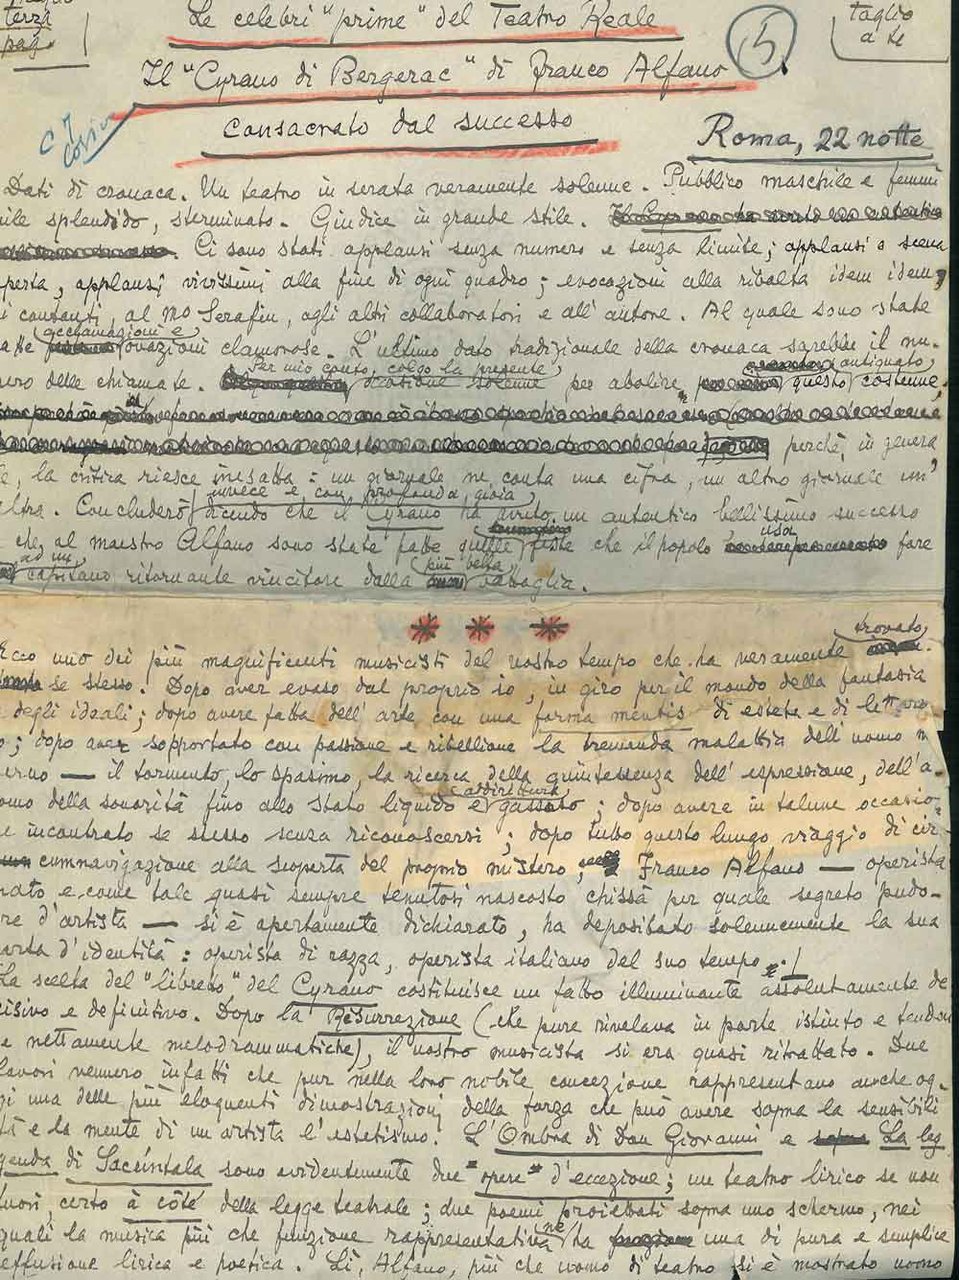 terza
pag.
Le celebri "prime" del Teatro Reale
Il "Cyrano di Bergerac" di Franco Alfano
consacrato dal successo
5
taglio
a
C 7
corsivo
Roma, 22 notte
Dati di cronaca. Un teatro in serata veramente solenne. Pubblico maschile e femmi
nile splendido, sterminato. Giudice in grande stile.
Ci sono stati applausi senza numero e senza limite; applausi a scena
perta, applausi vivissimi alla fine di ogni quadro; evocazioni alla ribalta idem idem,
i cantanti, al mo Serafin, agli altri collaboratori e all'autore. Al quale sono state
acclamazioni e
atte ovazioni clamorose. L'ultimo dato tradizionale della cronaca sarebbe il nu-
Per mio conto, colgo la presente antiquato
ero delle chiamate. occasione solenne per abolire questo costume,
perchè, in genera
e, la critica riesce inesatta: un giornale ne conta una cifra, un altro giornale un'
invece e, con profonda, gioia
altra. Concluderò dicendo che il Cyrano ha avuto un autentico bellissimo successo
usa
che al maestro Alfano sono state fatte quelle feste che il popolo fare
ad un più bella
capitano ritornante vincitore dalla battaglia.
* * *
trovato
Ecco uno dei più magnificenti musicisti del nostro tempo che ha veramente
se stesso. Dopo aver evaso dal proprio io, in giro per il mondo della fantasia
e degli ideali; dopo avere fatta dell'arte con una forma mentis di esteta e di lettera
o; dopo aver sopportato con passione e ribellione la tremenda malattia dell'uomo m
erno — il tormento, lo spasimo, la ricerca della quintessenza dell'espressione, dell'a-
addirittura
omo della sonorità fino allo stato liquido e gassato; dopo avere in talune occasio-
e incontrato se stesso senza riconoscersi; dopo tutto questo lungo viaggio di cir-
cumnavigazione alla scoperta del proprio mistero, Franco Alfano — operista
nato e come tale quasi sempre tenutosi nascosto chissà per quale segreto pudo-
re d'artista — si è apertamente dichiarato, ha depositato solennemente la sua
carta d'identità: operista di razza, operista italiano del suo tempo.
La scelta del "libretto" del Cyrano costituisce un fatto illuminante assolutamente de
cisivo e definitivo. Dopo la Resurrezione (che pure rivelava in parte istinto e tenden
e nettamente melodrammatiche), il nostro musicista si era quasi ritrattato. Due
lavori vennero infatti che pur nella loro nobile concezione rappresentano anche og-
gi una delle più eloquenti dimostrazioni della forza che può avere sopra la sensibili
tà e la mente di un artista l'estetismo. L'Ombra di Don Giovanni e La leg
genda di Sacùntala sono evidentemente due "opere" d'eccezione; un teatro lirico se non
fuori, certo à côté della legge teatrale; due poemi proiettati sopra uno schermo, nei
ne
quali la musica più che funzione rappresentativa ha una di pura e semplice
effusione lirica e poetica. Lì, Alfano, più che uomo di teatro si è mostrato uomo